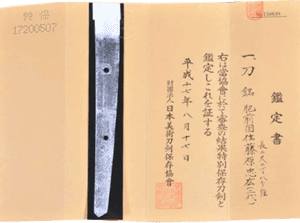 特保
17200507
鑑定書
一、刀 銘 肥前国住藤原忠広(二代)
右は當協會に於て審査の結果特別保存刀剣と
鑑定しこれを証する
平成十七年八月十七日
財団法人日本美術刀剣保存協會